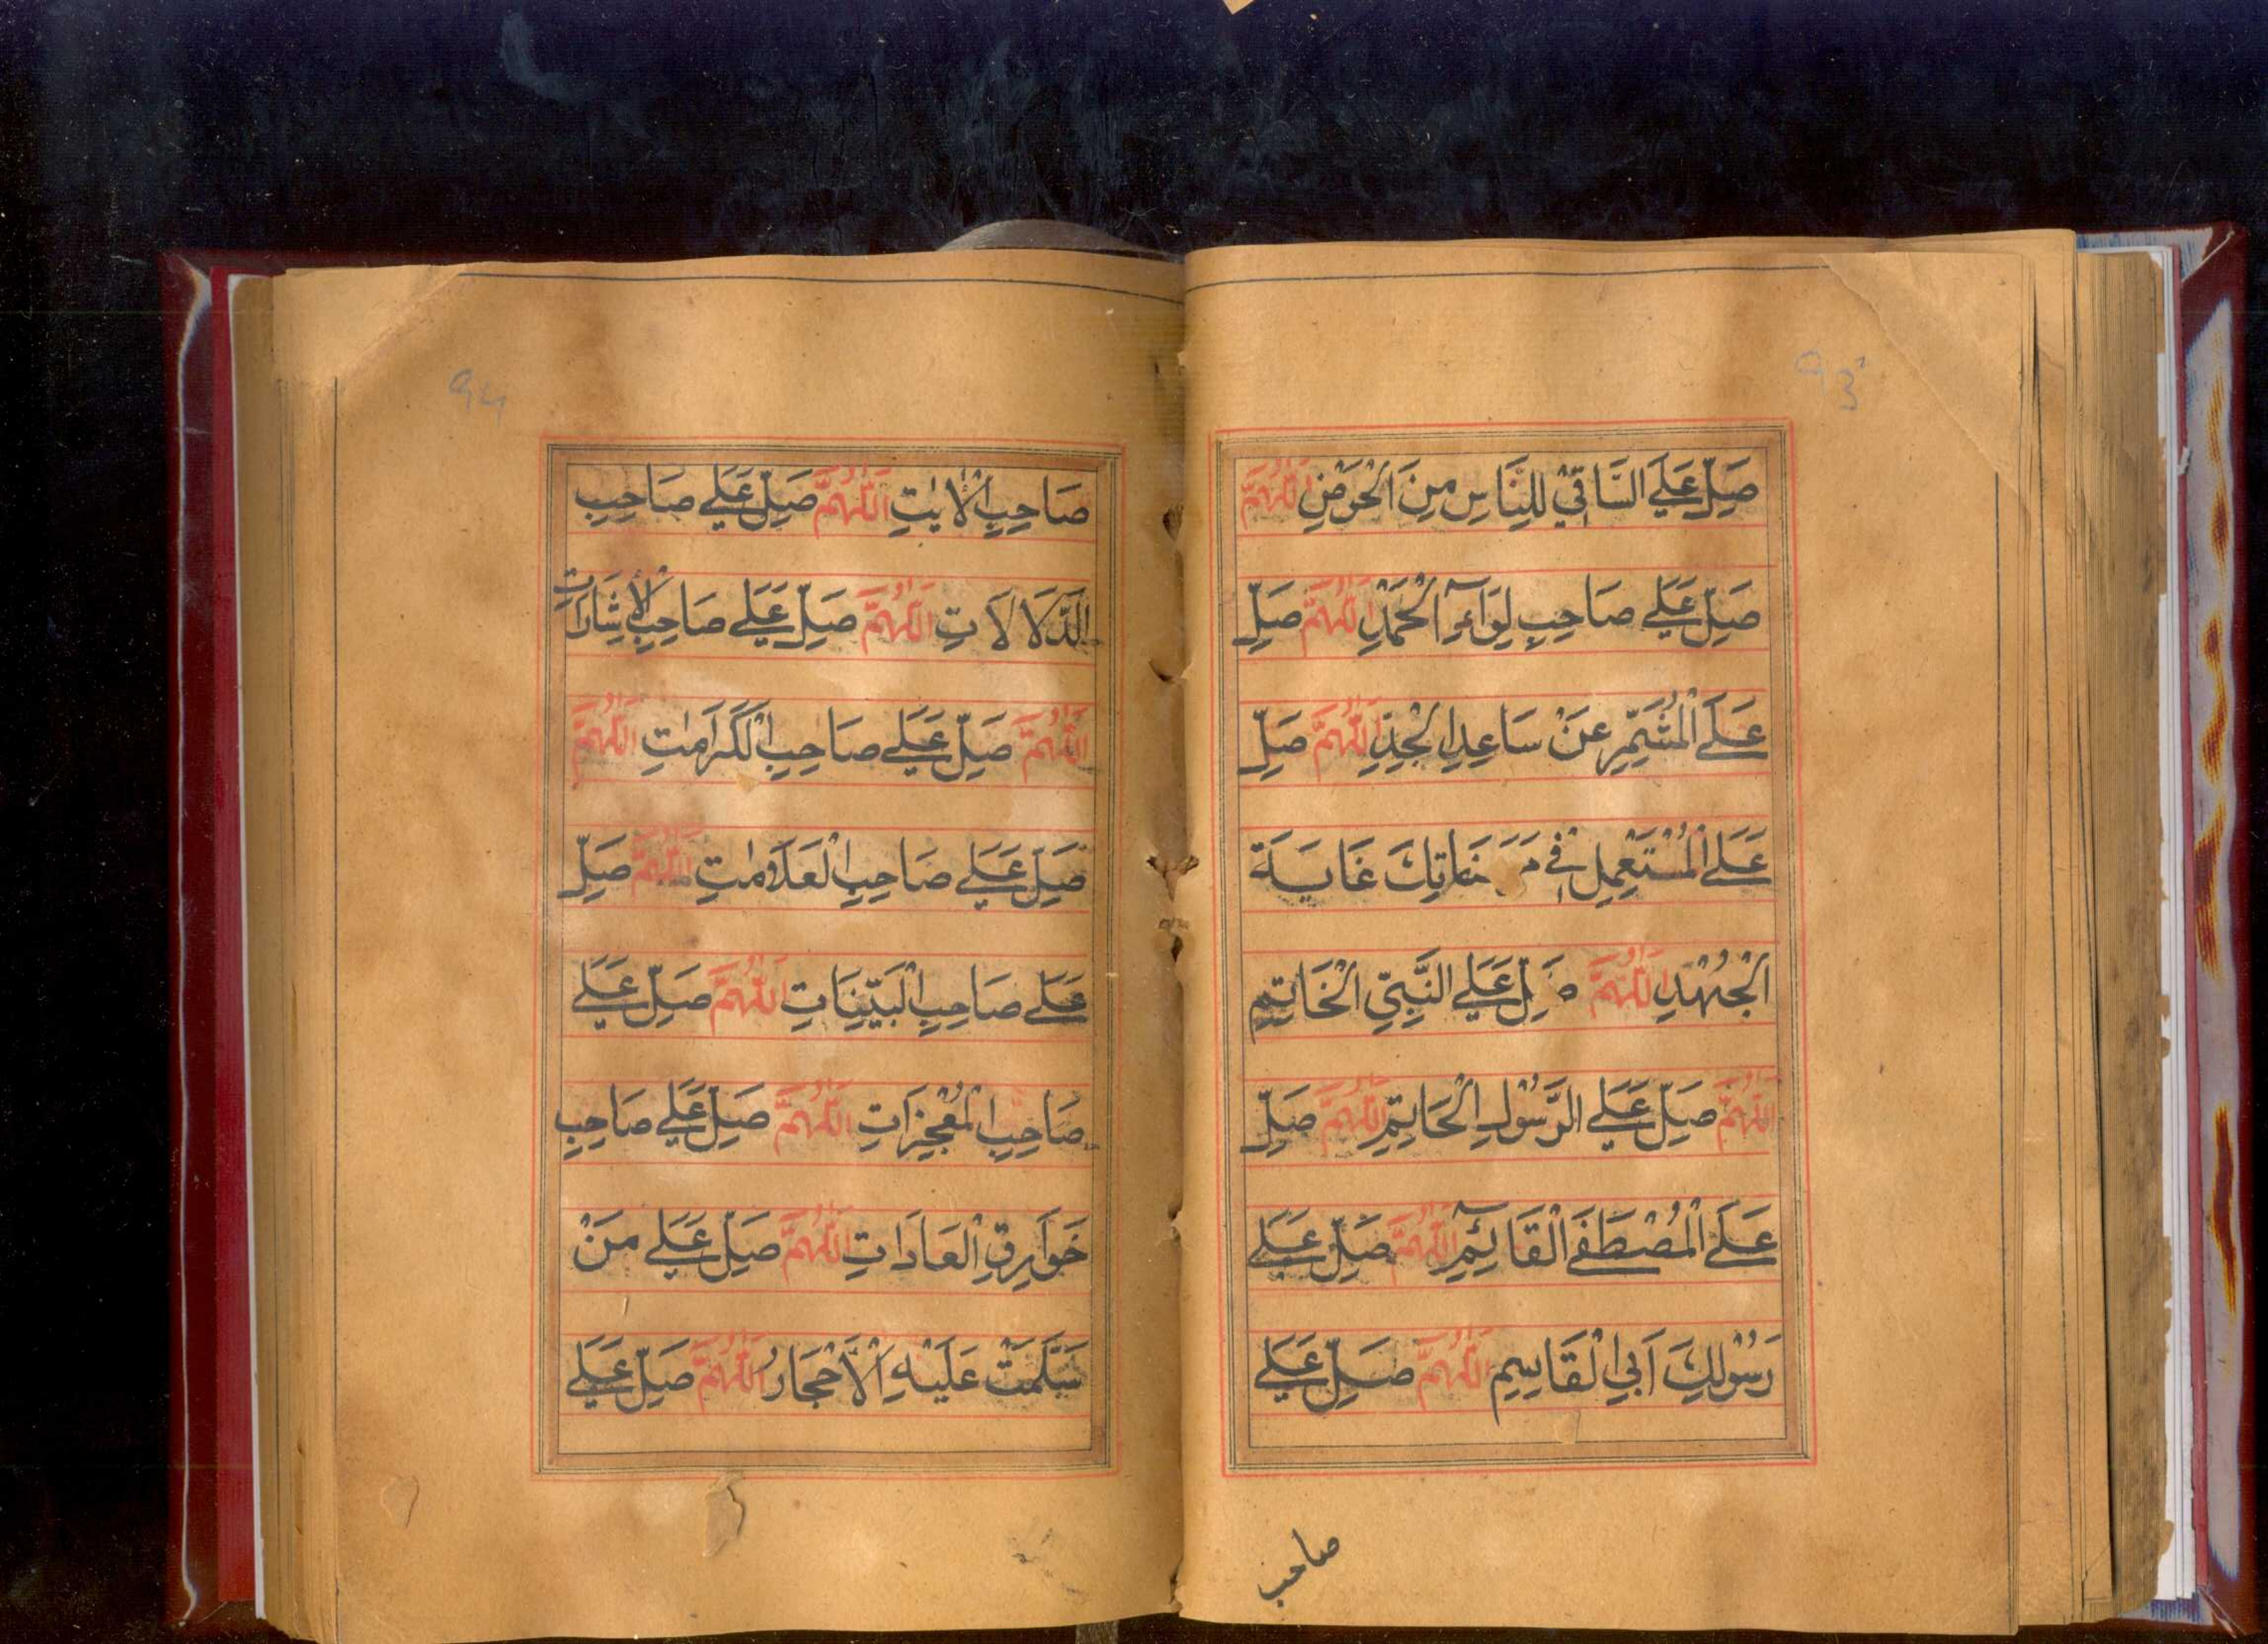 ۹۳
صَلِّ عَلَى السَّاقِيْ لِلنَّاسِ مِنَ الْحَوْضِ اَللّٰهُمَّ
صَلِّ عَلٰى صَاحِبِ لِوَآءِ الْحَمْدِ اَللّٰهُمَّ صَلِّ
عَلَى الْمُشَمِّرِ عَنْ سَاعِدِ الْجِدِّ اَللّٰهُمَّ صَلِّ
عَلَى الْمُسْتَعْمِلِ فِيْ مَرْضَاتِكَ غَايَةَ
الْجُهْدِ اَللّٰهُمَّ صَلِّ عَلَى النَّبِيِّ الْخَاتِمِ
اَللّٰهُمَّ صَلِّ عَلَى الرَّسُوْلِ الْخَاتِمِ اَللّٰهُمَّ صَلِّ
عَلَى الْمُصْطَفَى الْقَآئِمِ اَللّٰهُمَّ صَلِّ عَلٰى
رَسُوْلِكَ اَبِي الْقَاسِمِ اَللّٰهُمَّ صَلِّ عَلٰى
صاحب
۹۴
صَاحِبِ الْاٰيٰتِ اَللّٰهُمَّ صَلِّ عَلٰى صَاحِبِ
الدَّلَالَاتِ اَللّٰهُمَّ صَلِّ عَلٰى صَاحِبِ الْاِشَارَاتِ
اَللّٰهُمَّ صَلِّ عَلٰى صَاحِبِ الْكَرَامٰتِ اَللّٰهُمَّ
صَلِّ عَلٰى صَاحِبِ الْعَلَامٰتِ اَللّٰهُمَّ صَلِّ
عَلٰى صَاحِبِ الْبَيِّنَاتِ اَللّٰهُمَّ صَلِّ عَلٰى
صَاحِبِ الْمُعْجِزَاتِ اَللّٰهُمَّ صَلِّ عَلٰى صَاحِبِ
خَوَارِقِ الْعَادَاتِ اَللّٰهُمَّ صَلِّ عَلٰى مَنْ
سَلَّمَتْ عَلَيْهِ الْاَحْجَارُ اَللّٰهُمَّ صَلِّ عَلٰى